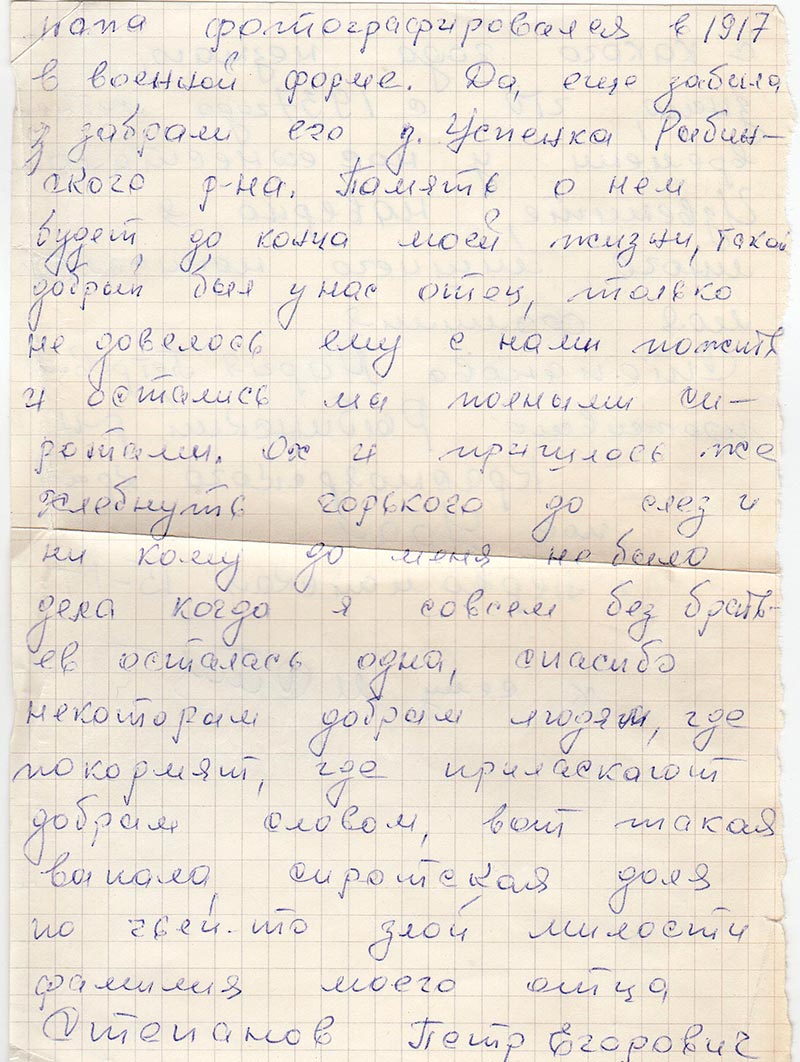 папа фотографировался в 1917
в военной форме. Да, еще забыла
забрали его д. Успенка Рыбин-
ского р-на. Память о нем
будет до конца моей жизни, такой
добрый был у нас отец, только
не довелось ему с нами пожить
и остались мы полными си-
ротами. Ох и пришлось же
хлебнуть горького до слез и
ни кому до меня не было
дела когда я совсем без брать-
ев осталась одна, спасибо
некоторым добрым людям, где
покормят, где приласкают
добрым словом, вот такая
выпала, сиротская доля
по чьей-то злой милости
фамилия моего отца
Степанов Петр Егорович